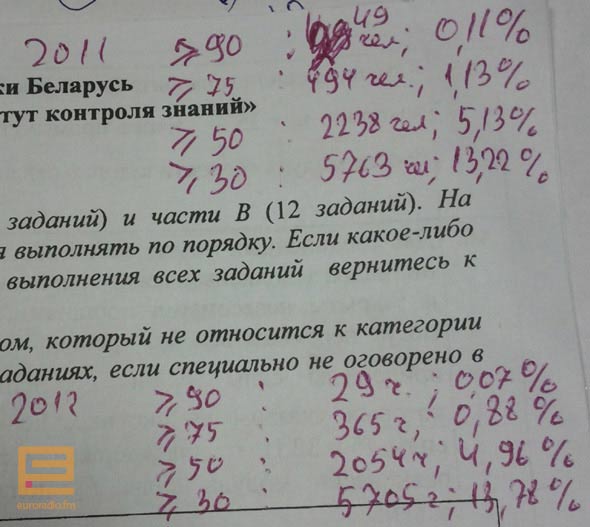 2011 ⩾ 90 : 49 чел; 0,11%
ки Беларусь ⩾ 75 : 494 чел.; 1,13%
тут контроля знаний»
⩾ 50 : 2238 чел; 5,13%
⩾ 30 : 5763 чел; 13,22%
заданий) и части В (12 заданий). На
я выполнять по порядку. Если какое-либо
выполнения всех заданий вернитесь к
ом, который не относится к категории
аданиях, если специально не оговорено в
2012 ⩾ 90 : 29 ч.; 0,07%
⩾ 75 : 365 ч; 0,88%
⩾ 50 : 2054 ч; 4,96%
⩾ 30 : 5705 ч; 13,78%
euroradio.fm